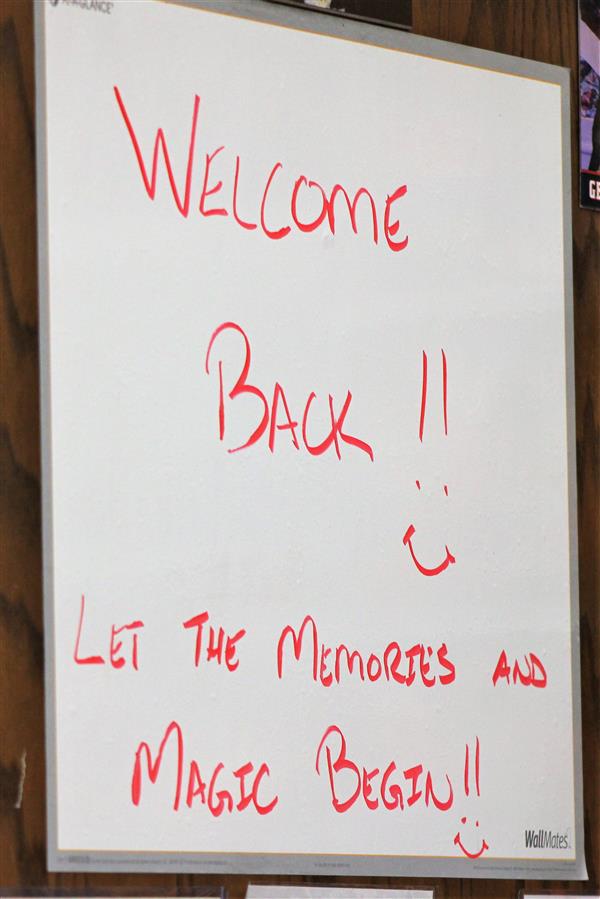 WELCOME
BACK !!
LET THE MEMORIES AND
MAGIC BEGIN!!
WallMates
GE